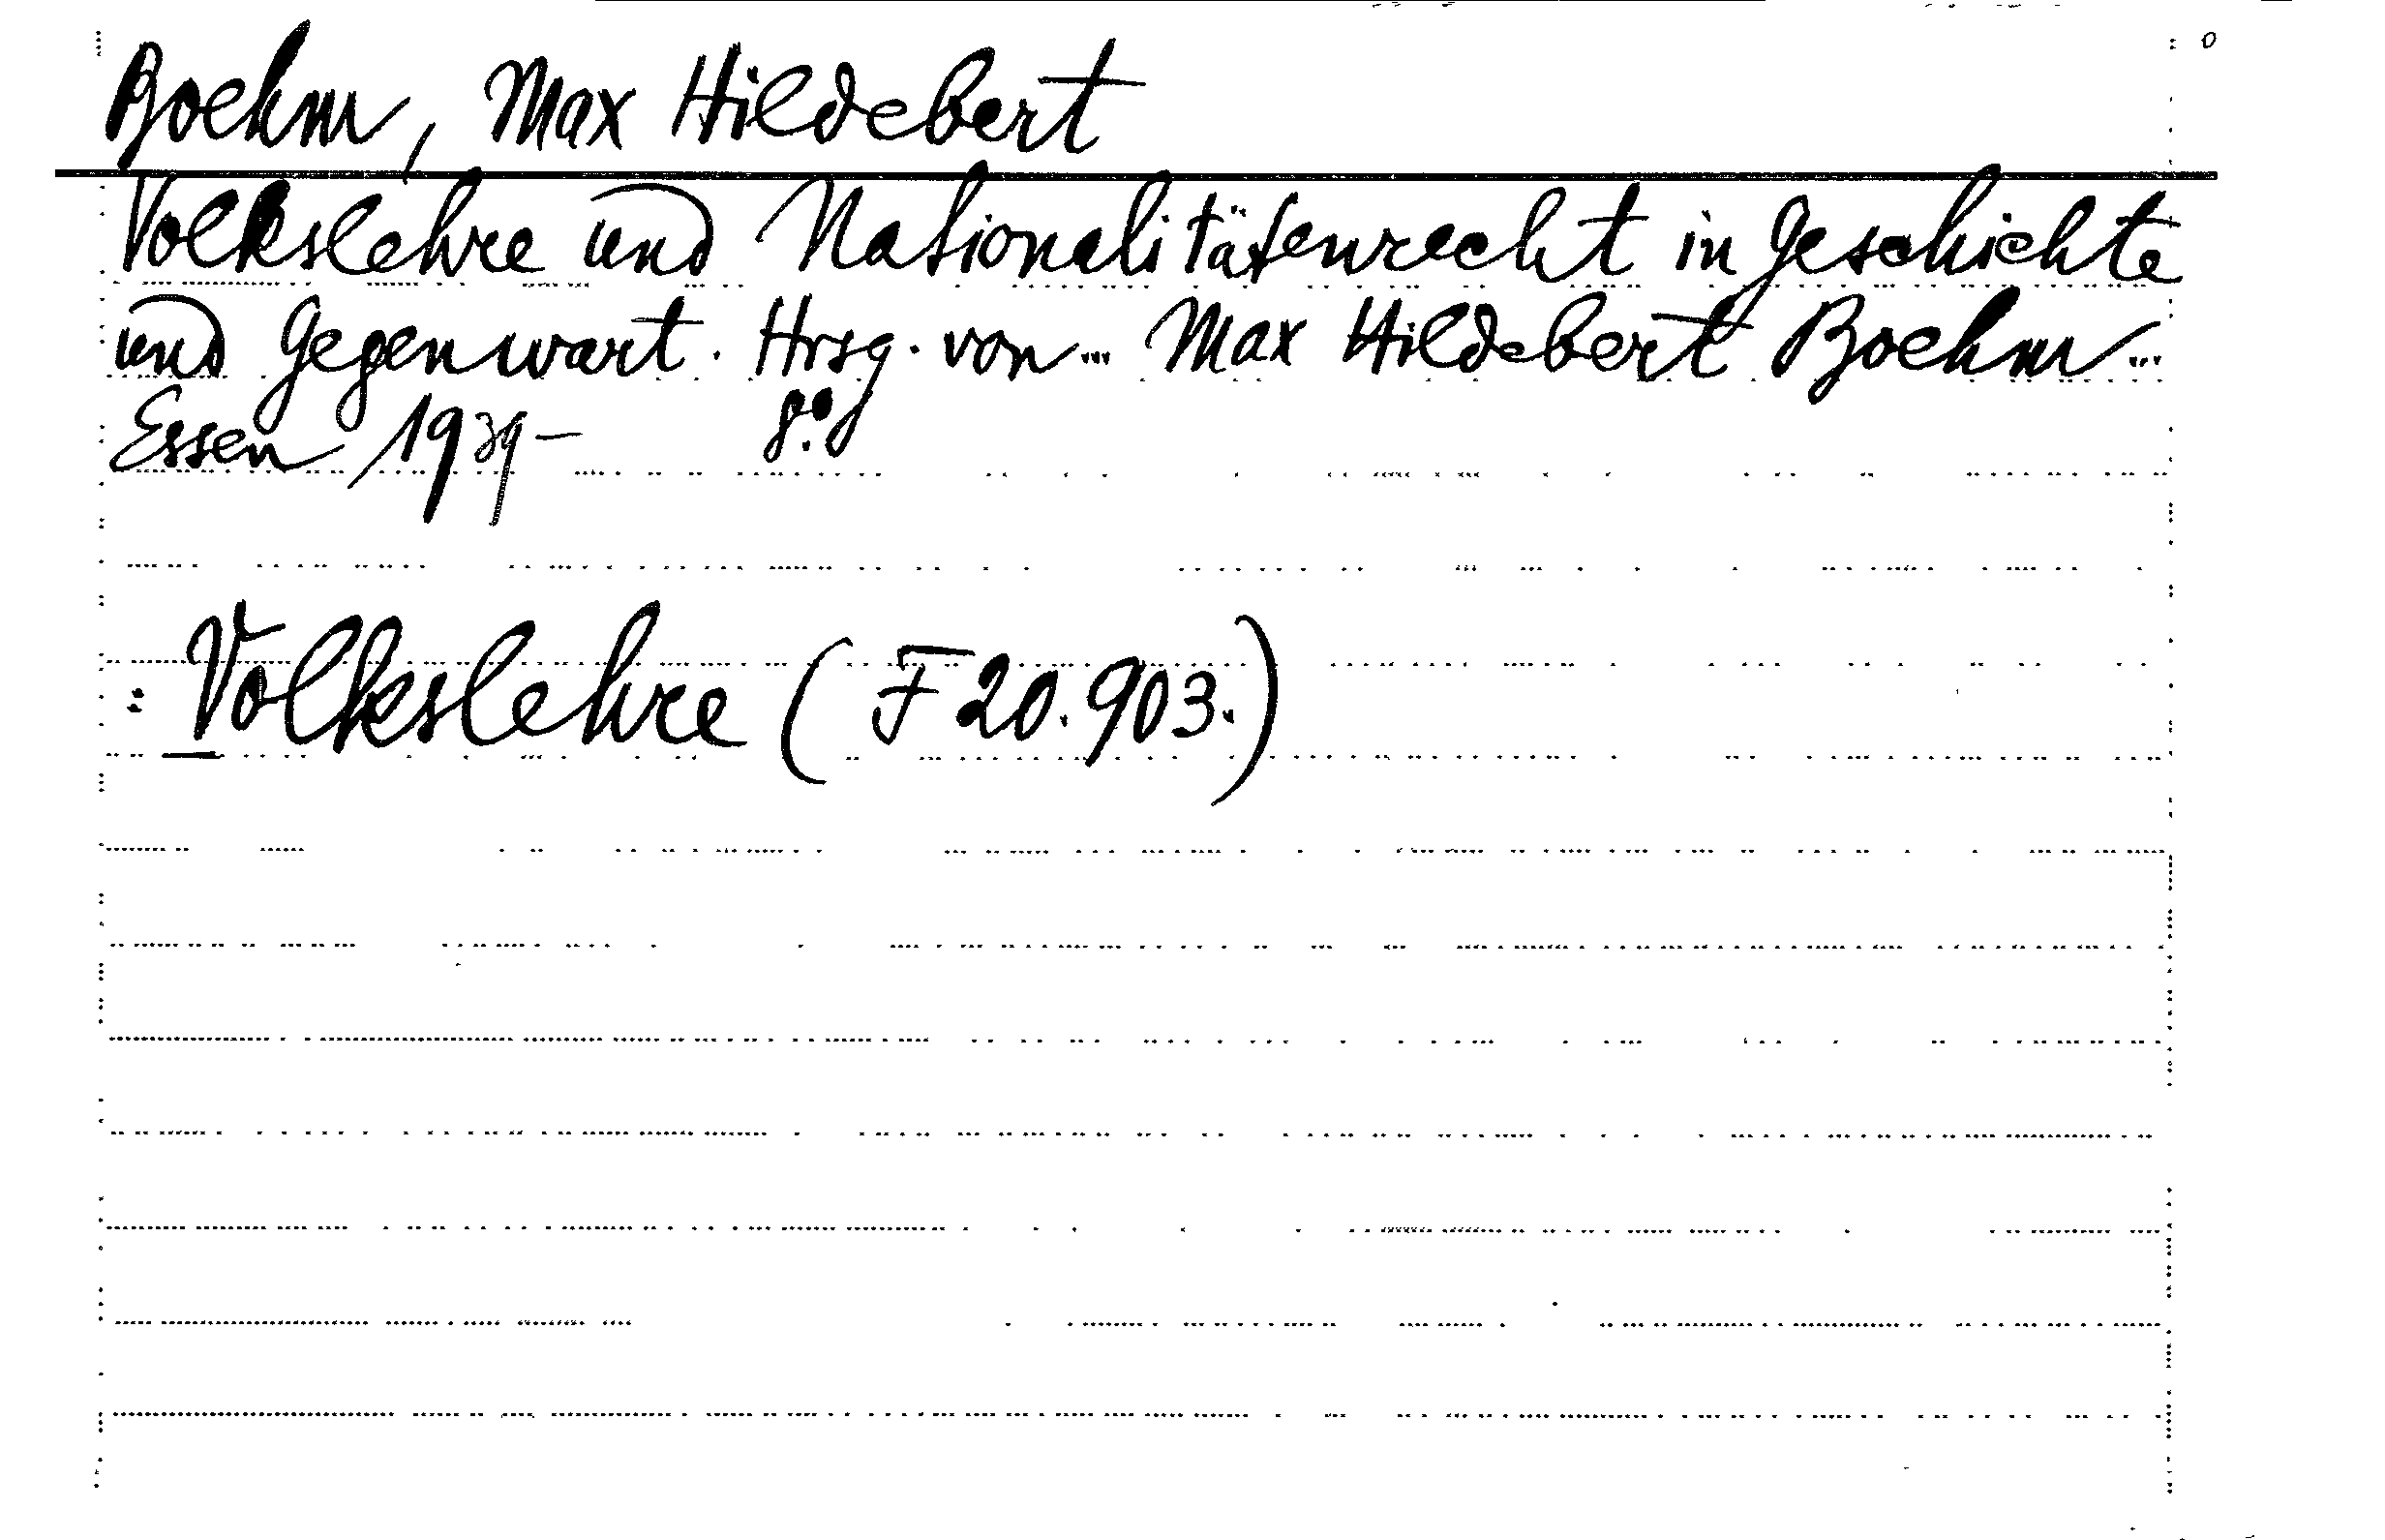 Boehm, Max Hildebert
Volkslehre und Nationalitätenrecht in Geschichte
und Gegenwart. Hrsg. von... Max Hildebert Boehm...
Essen 1939– 8°.
: Volkslehre (F 20.903.)